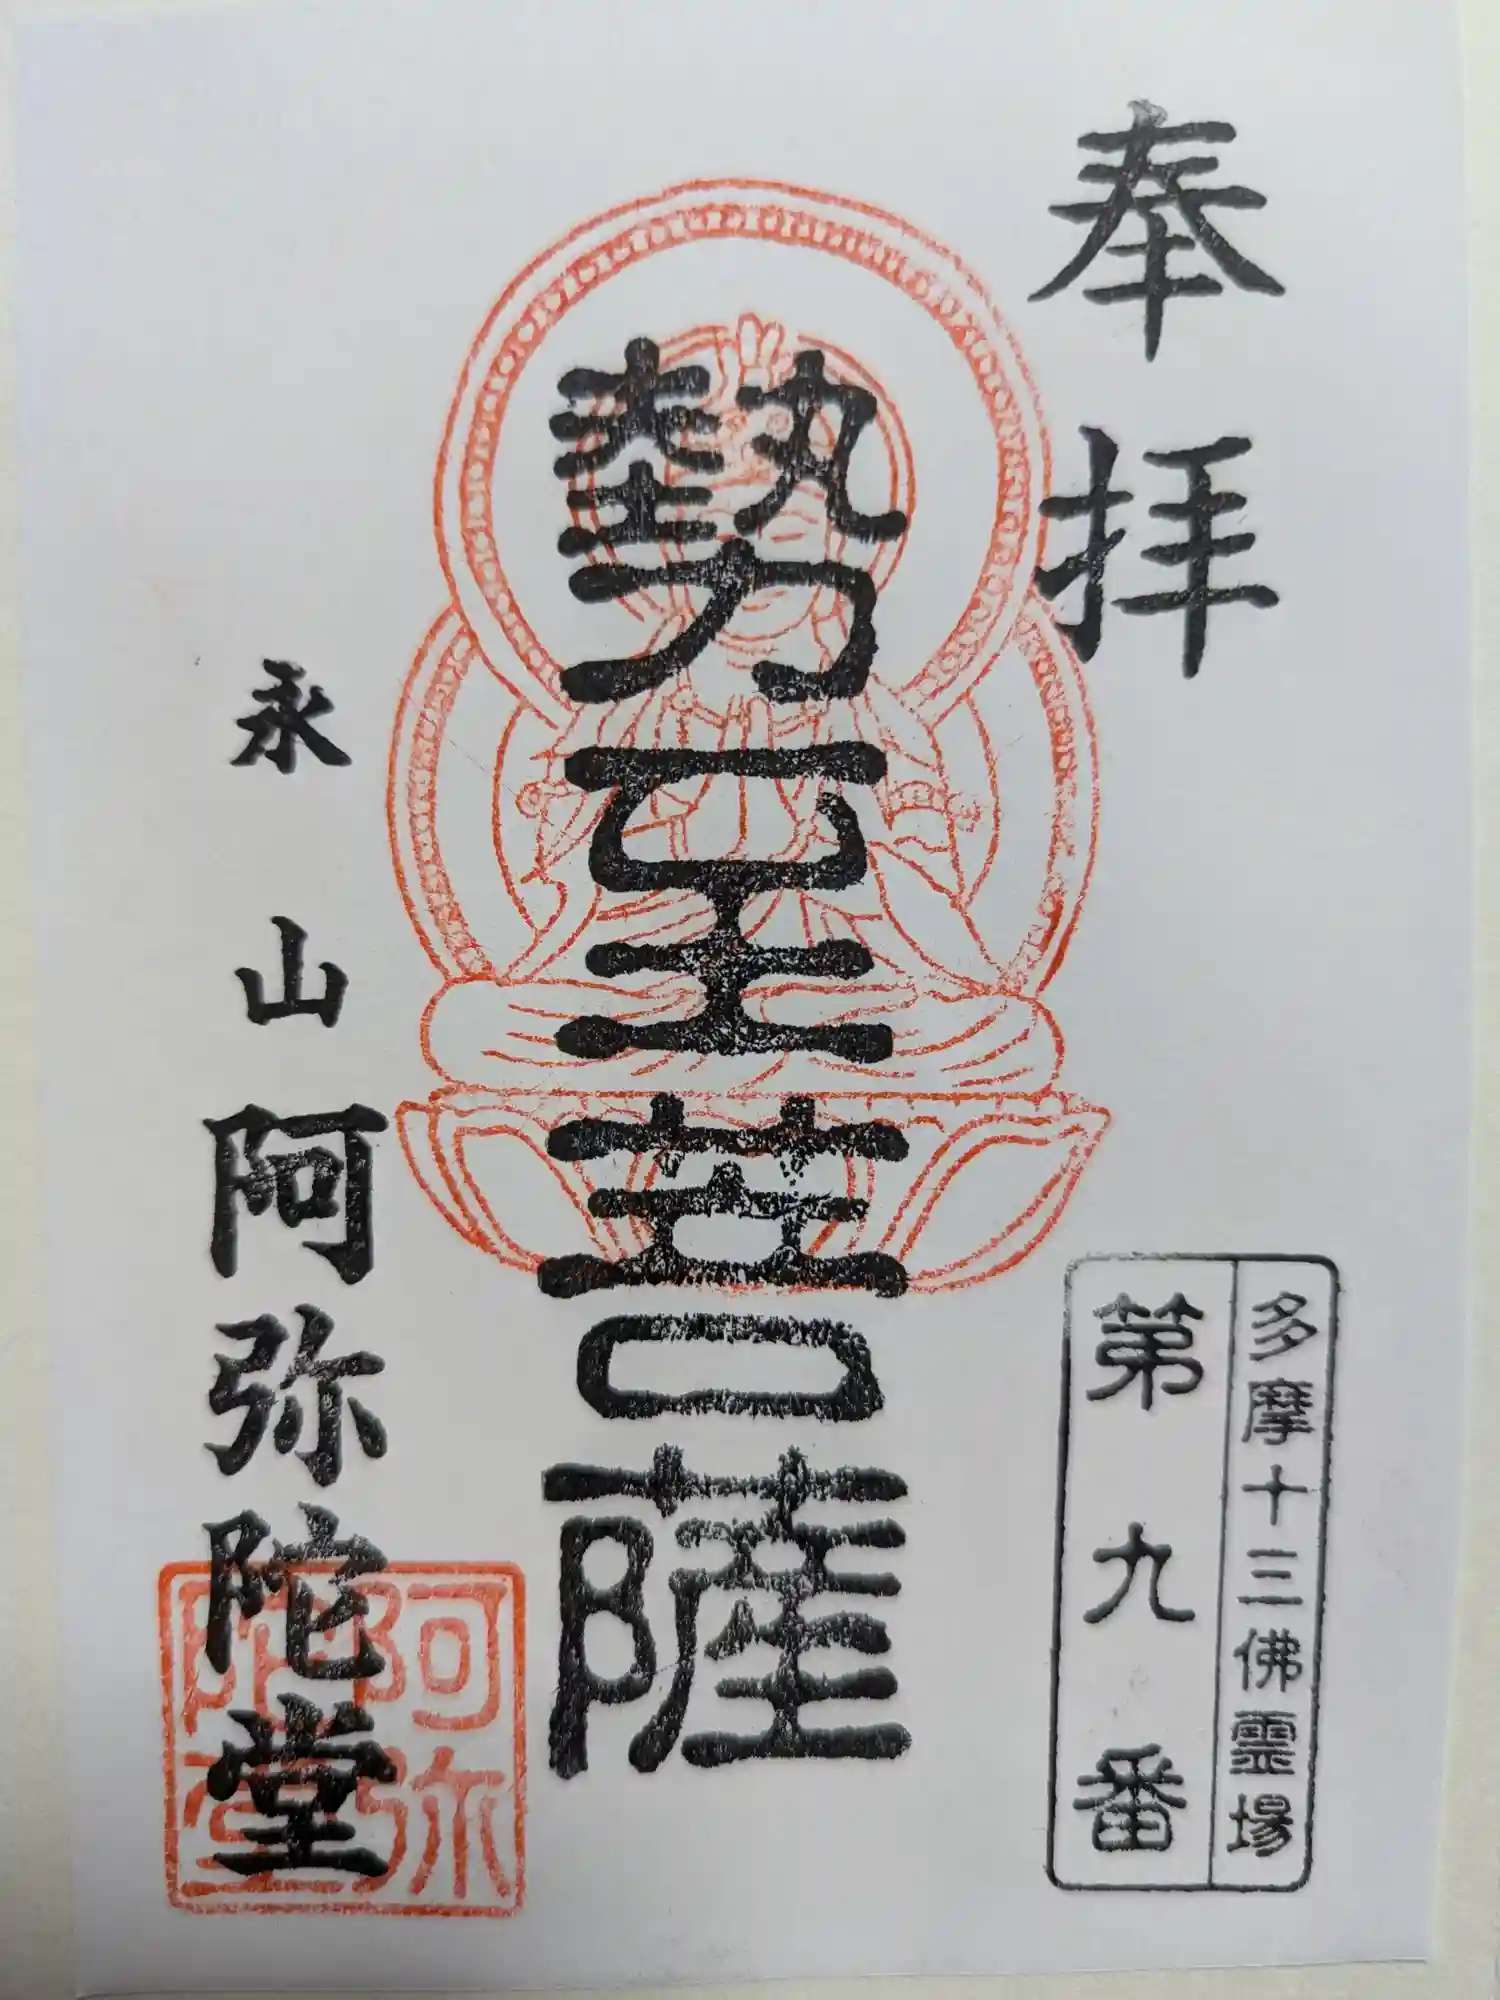 奉拝
多摩十三佛霊場
第九番
勢至菩薩
永山阿弥陀堂
阿弥陀堂